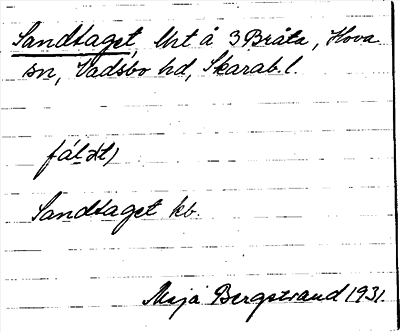 Sandtaget, lht å 3 Bråta, Hova
sn, Vadsbo hd, Skarab. l.
Sandtaget kb.
Maja Bergstrand 1931.